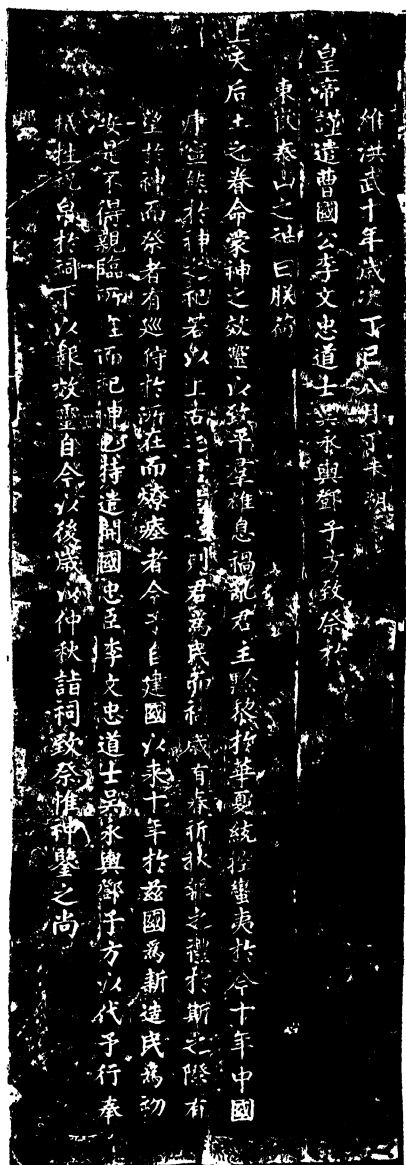 維洪武十年歲次丁巳八月丁未朔
皇帝謹遣曹國公李文忠道士吳永輿鄧子方致祭於
東岱泰山之祉曰朕荷
上天后土之眷命蒙神之效靈以致平羣雄息禍亂君主黔黎於華夏統控蠻夷於今十年中國
康寧然於神之祀若以上古之 則君爲民而祈歲有春祈秋報之禮於斯之際有
望於神而祭者有巡狩於所在而燎瘞者今予自建國以來十年於茲國爲新造民爲初
安是不得親臨所在而祀神也特遣開國忠臣李文忠道士吳永輿鄧子方以代予行奉
犧牲祝帛於祠下以報效靈自今以後歲以仲秋詣祠致祭惟神鑒之尚